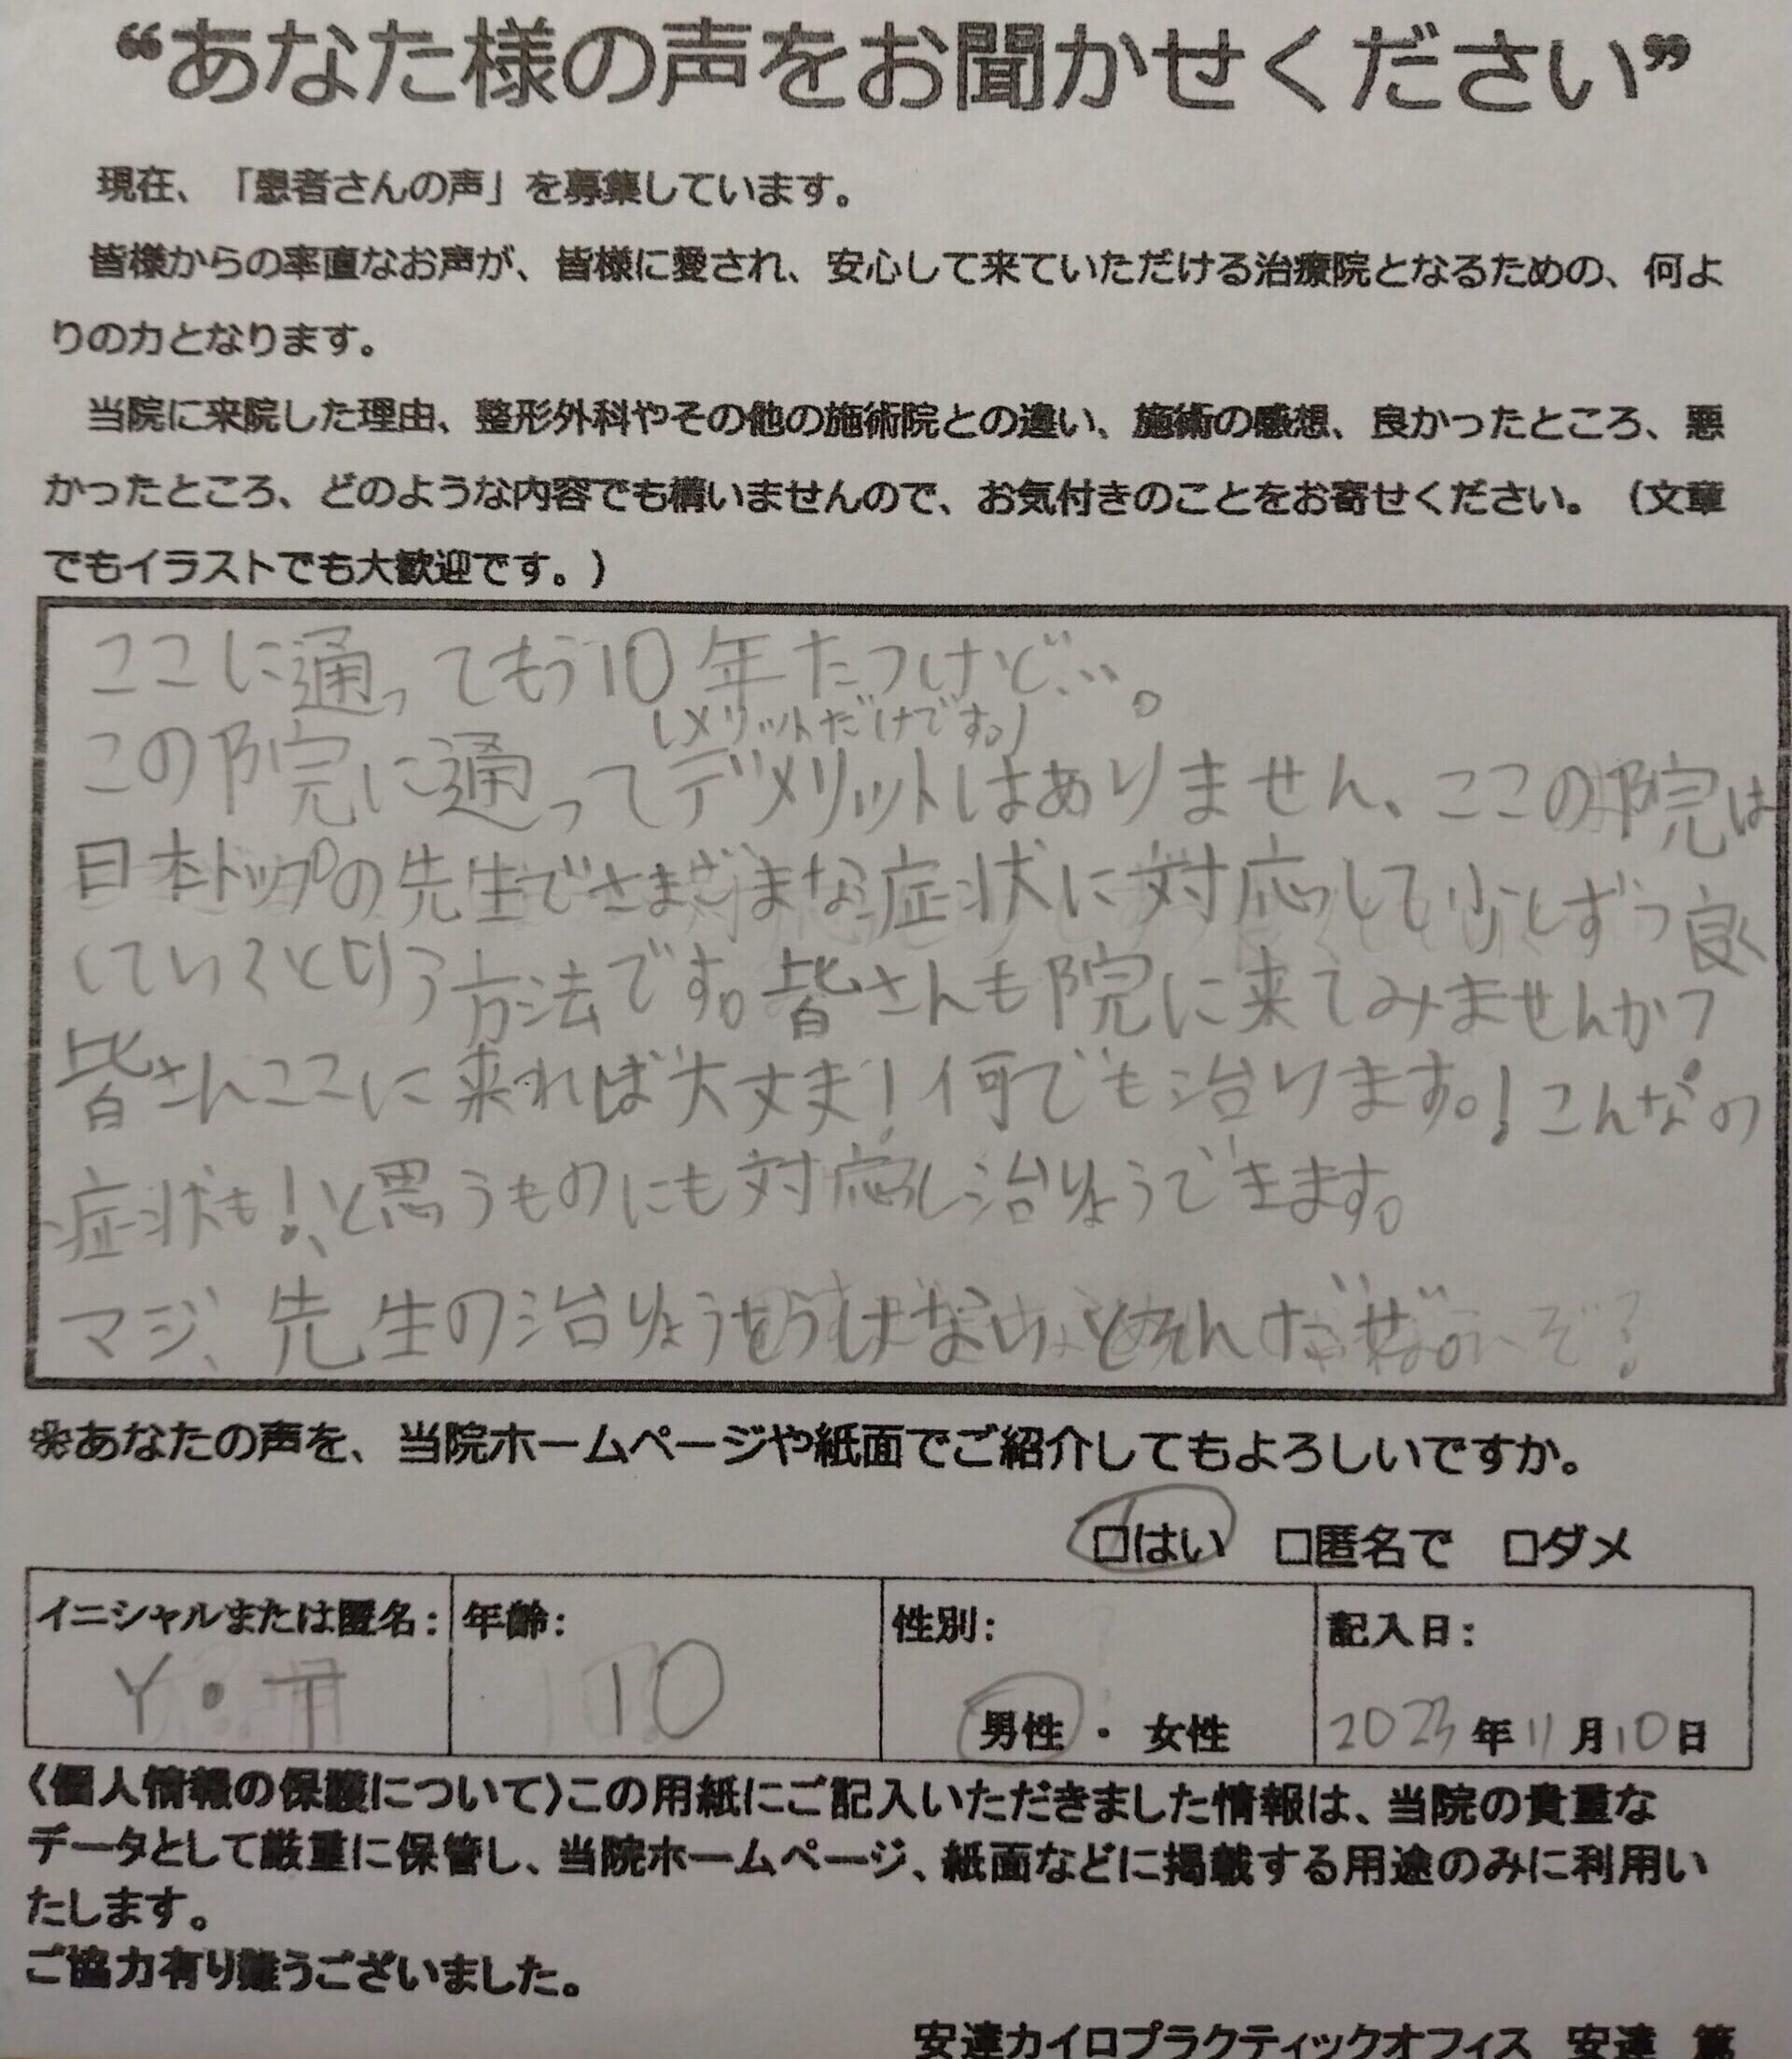 “あなた様の声をお聞かせください”
現在、「患者さんの声」を募集しています。
皆様からの率直なお声が、皆様に愛され、安心して来ていただける治療院となるための、何よ
りの力となります。
当院に来院した理由、整形外科やその他の施術院との違い、施術の感想、良かったところ、悪
かったところ、どのような内容でも構いませんので、お気付きのことをお寄せください。（文章
でもイラストでも大歓迎です。）
ここに通ってもう10年たつけど…。
(メリットだけです。)
この院に通ってデメリットはありません、ここの院は
日本トップの先生でさまざまな症状に対応して少しずつ良く
していくという方法です。皆さんも院に来てみませんか?
皆さんここに来れば大丈夫!何でも治ります。!こんなの
症状も!、と思うものにも対応し治りょうできます。
マジ、先生の治りょうをうけないとそんだぜ。
※あなたの声を、当院ホームページや紙面でご紹介してもよろしいですか。
□はい □匿名で □ダメ
イニシャルまたは匿名: 年齢: 性別: 記入日:
Y・T 10 男性 ・ 女性 2023年11月10日
〈個人情報の保護について〉この用紙にご記入いただきました情報は、当院の貴重な
データとして厳重に保管し、当院ホームページ、紙面などに掲載する用途のみに利用い
たします。
ご協力有り難うございました。
安達カイロプラクティックオフィス 安達